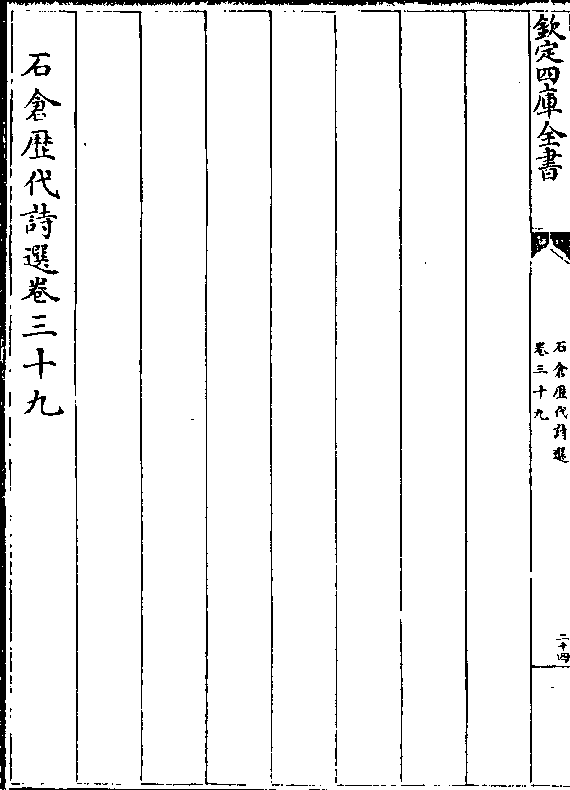 欽定四庫全書
石倉歷代詩選
卷三十九
二十四
石倉歷代詩選卷三十九